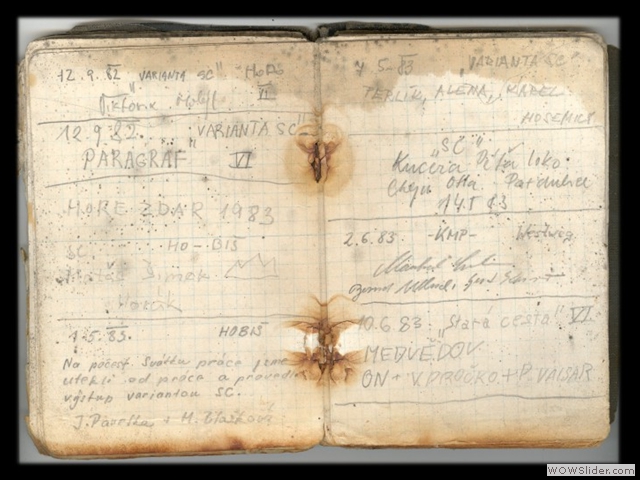 12.9.82 "VARIANTA SC" HOBIŠ
VI
12.9.82. "VARIANTA SC"
PARAGRAF VI
HORE ZDAR 1983
SC HO-BIŠ
Matáš Šimek
Horák
1.5.83. HOBIŠ
Na počest Svátku práce jsme
utekli od práce a provedli
výstup variantou SC.
J. Pavelka + M. Blašková
7 5-83 "VARIANTA SC"
TEPLÍK, ALENA, KAREL
HOSEMICE
"SC"
Kučera Píťa Loko
Otta Pardubice
14.5 83
2.6.83. -KMP-
10.6.83 "Stará cesta" VI
MEDVĚDOV
ON + V. PROČKO + P. VALSAR
WOWSlider.com